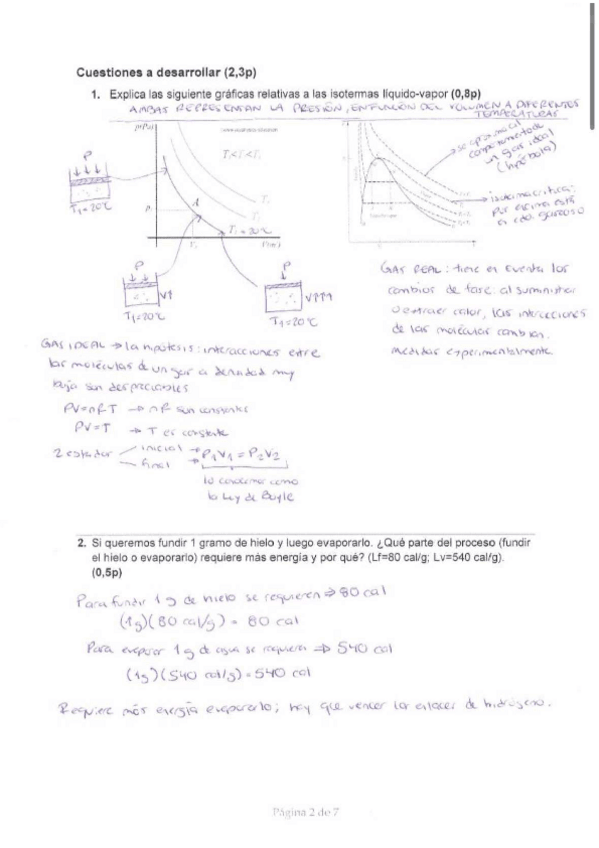 Cuestiones a desarrollar (2,3p)
1. Explica las siguiente gráficas relativas a las isotermas líquido-vapor (0,8p)
AMBAS REPRESENTAN LA PRESIÓN, EN FUNCIÓN DEL VOLUMEN A DIFERENTES
TEMPERATURAS
P
T₁=20℃
T₁<T₂<T₃
A
T₁=20℃
P
V↑
T₁=20℃
P
V↑↑↑
T₁=20℃
se aproxima al
comportamiento de
un gas ideal
(hipérbola)
isoterma crítica:
por encima está
en edo gaseoso
GAS REAL: tiene en cuenta los
cambios de fase: al suministrar
o extraer calor, las interacciones
de las moléculas cambian.
medidas experimentalmente
GAS IDEAL → la hipótesis: interacciones entre
las moléculas de un gas a densidad muy
baja son despreciables
PV=nRT → nR son constantes
PV=T → T es constante
2 estados
inicial
final
P₁V₁=P₂V₂
lo conocemos como
la Ley de Boyle
2. Si queremos fundir 1 gramo de hielo y luego evaporarlo. ¿Qué parte del proceso (fundir
el hielo o evaporarlo) requiere más energía y por qué? (Lf=80 cal/g; Lv=540 cal/g).
(0,5p)
Para fundir 1 g de hielo se requieren ⇒ 80 cal
(1g)(80 cal/g) = 80 cal
Para evaporar 1 g de agua se requieren ⇒ 540 cal
(1g)(540 cal/g)=540 cal
Requiere más energía evaporarlo; hay que vencer los enlaces de hidrógeno.
Página 2 de 7